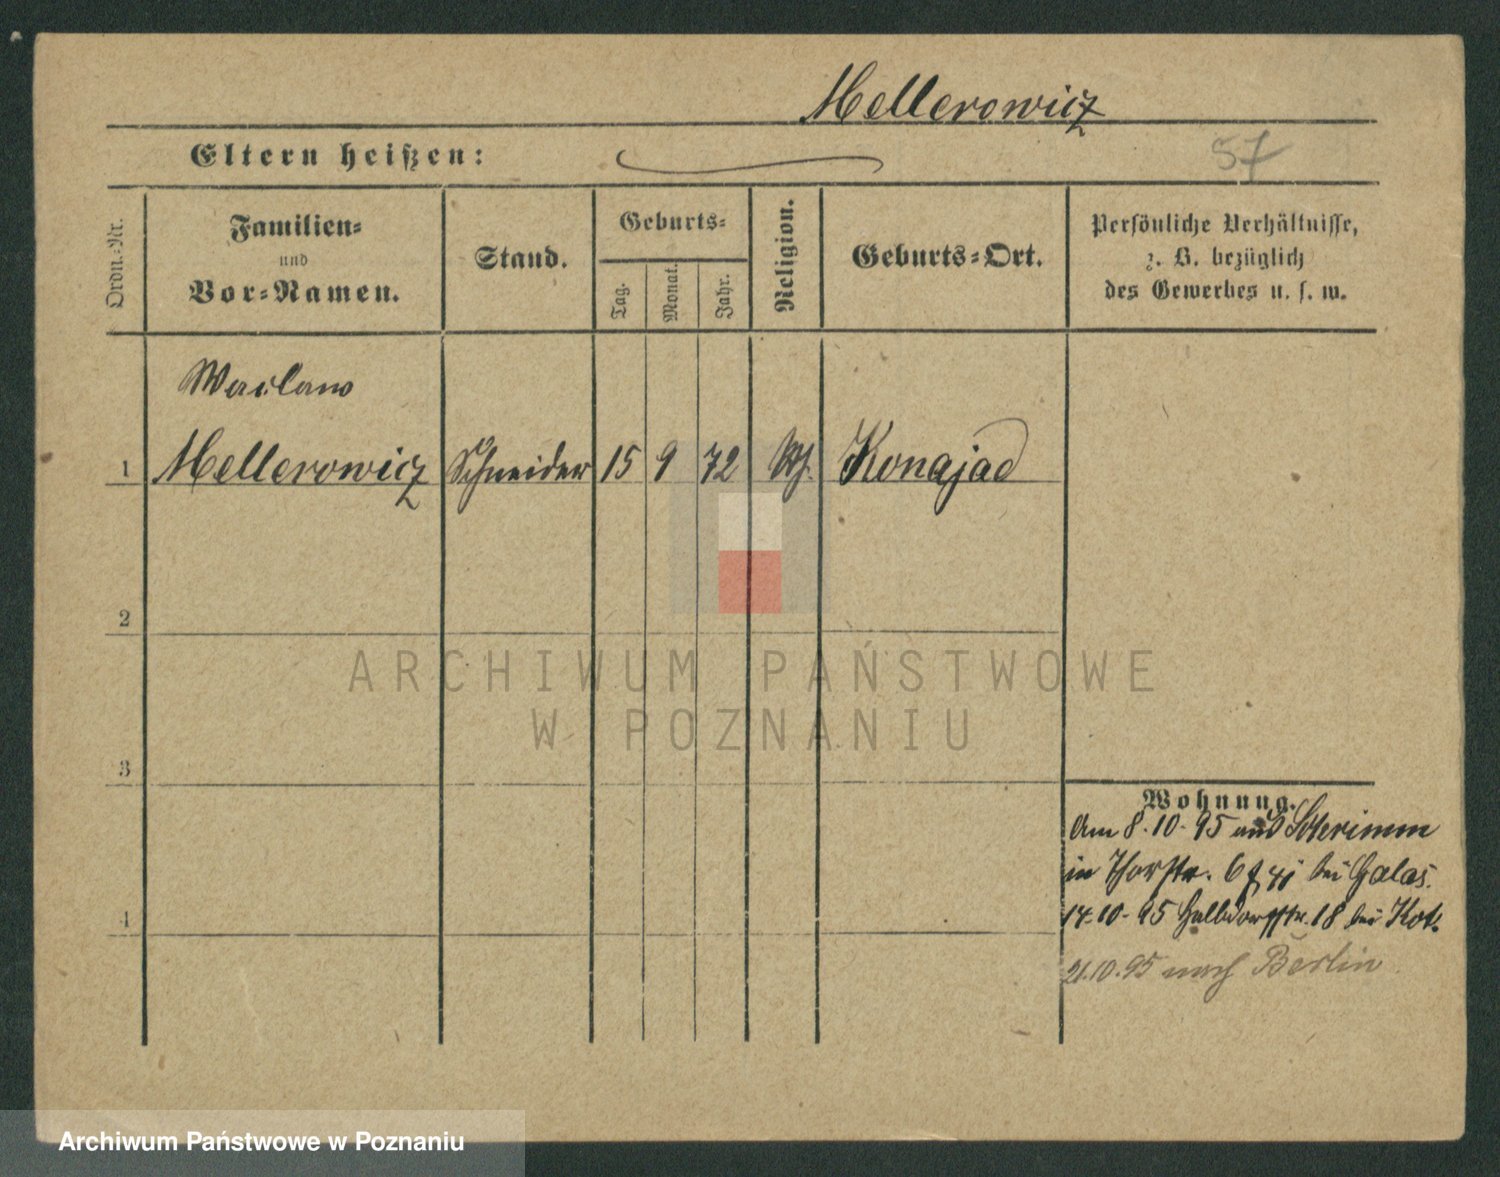 Mellerowicz
Eltern heißen:
57
Ordn.-Nr.
Familien-
und
Vor-Namen.
Stand.
Geburts-
Tag.
Monat.
Jahr.
Religion.
Geburts-Ort.
Persönliche Verhältnisse,
z. B. bezüglich
des Gewerbes u. s. w.
Waclaw
1 Mellerowicz Schneider 15 9 72 kth. Konajad
2
ARCHIWUM PAŃSTWOWE
W POZNANIU
3
Wohnung.
Am 8.10.95 aus
in Thorstr. bei Galas.
4
14.10.95 Halbdorfstr. 18 bei Kot.
21.10.95 nach Berlin
Archiwum Państwowe w Poznaniu